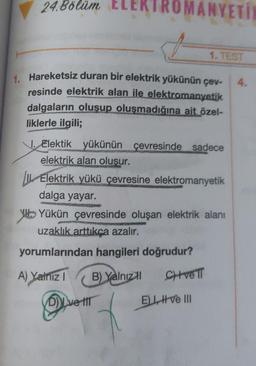 24.Bölüm ELEKTROMANYETİK
1. TEST
1. Hareketsiz duran bir elektrik yükünün çev-
resinde elektrik alan ile elektromanyetik
dalgaların oluşup oluşmadığına ait özel-
liklerle ilgili;
I. Elektik yükünün çevresinde sadece
elektrik alan oluşur.
II. Elektrik yükü çevresine elektromanyetik
dalga yayar.
III. Yükün çevresinde oluşan elektrik alanı
uzaklık arttıkça azalır.
yorumlarından hangileri doğrudur?
A) Yalnız I B) Yalnız II C) I ve II
D) I ve III E) I, II ve III
4.